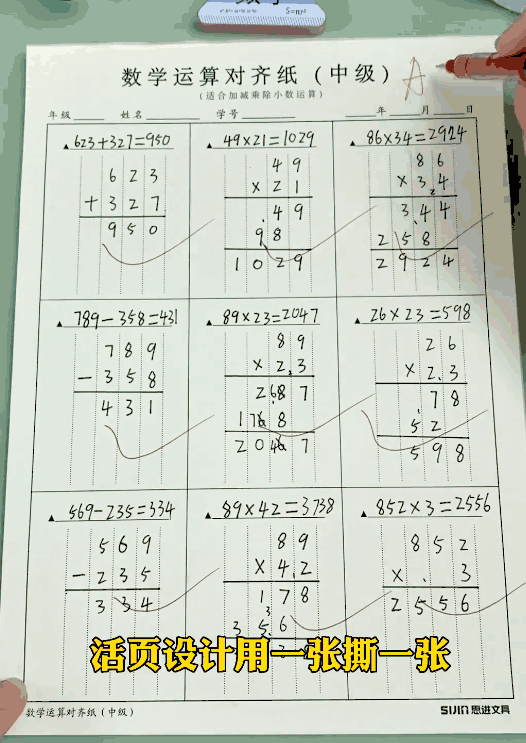 数学运算对齐纸（中级）
A
（适合加减乘除小数运算）
年级 姓名 学号 年 月 日
623+327=950
623
+327
950
49×21=1029
49
×21
49
98
1029
86×34=2924
86
×34
344
258
2924
789-358=431
789
-358
431
89×23=2047
89
×23
267
178
2047
26×23=598
26
×23
78
52
598
569-235=334
569
-235
334
89×42=3738
89
×42
178
356
852×3=2556
852
×3
2556
活页设计用一张撕一张
数学运算对齐纸（中级）
SIJIN 思进文具